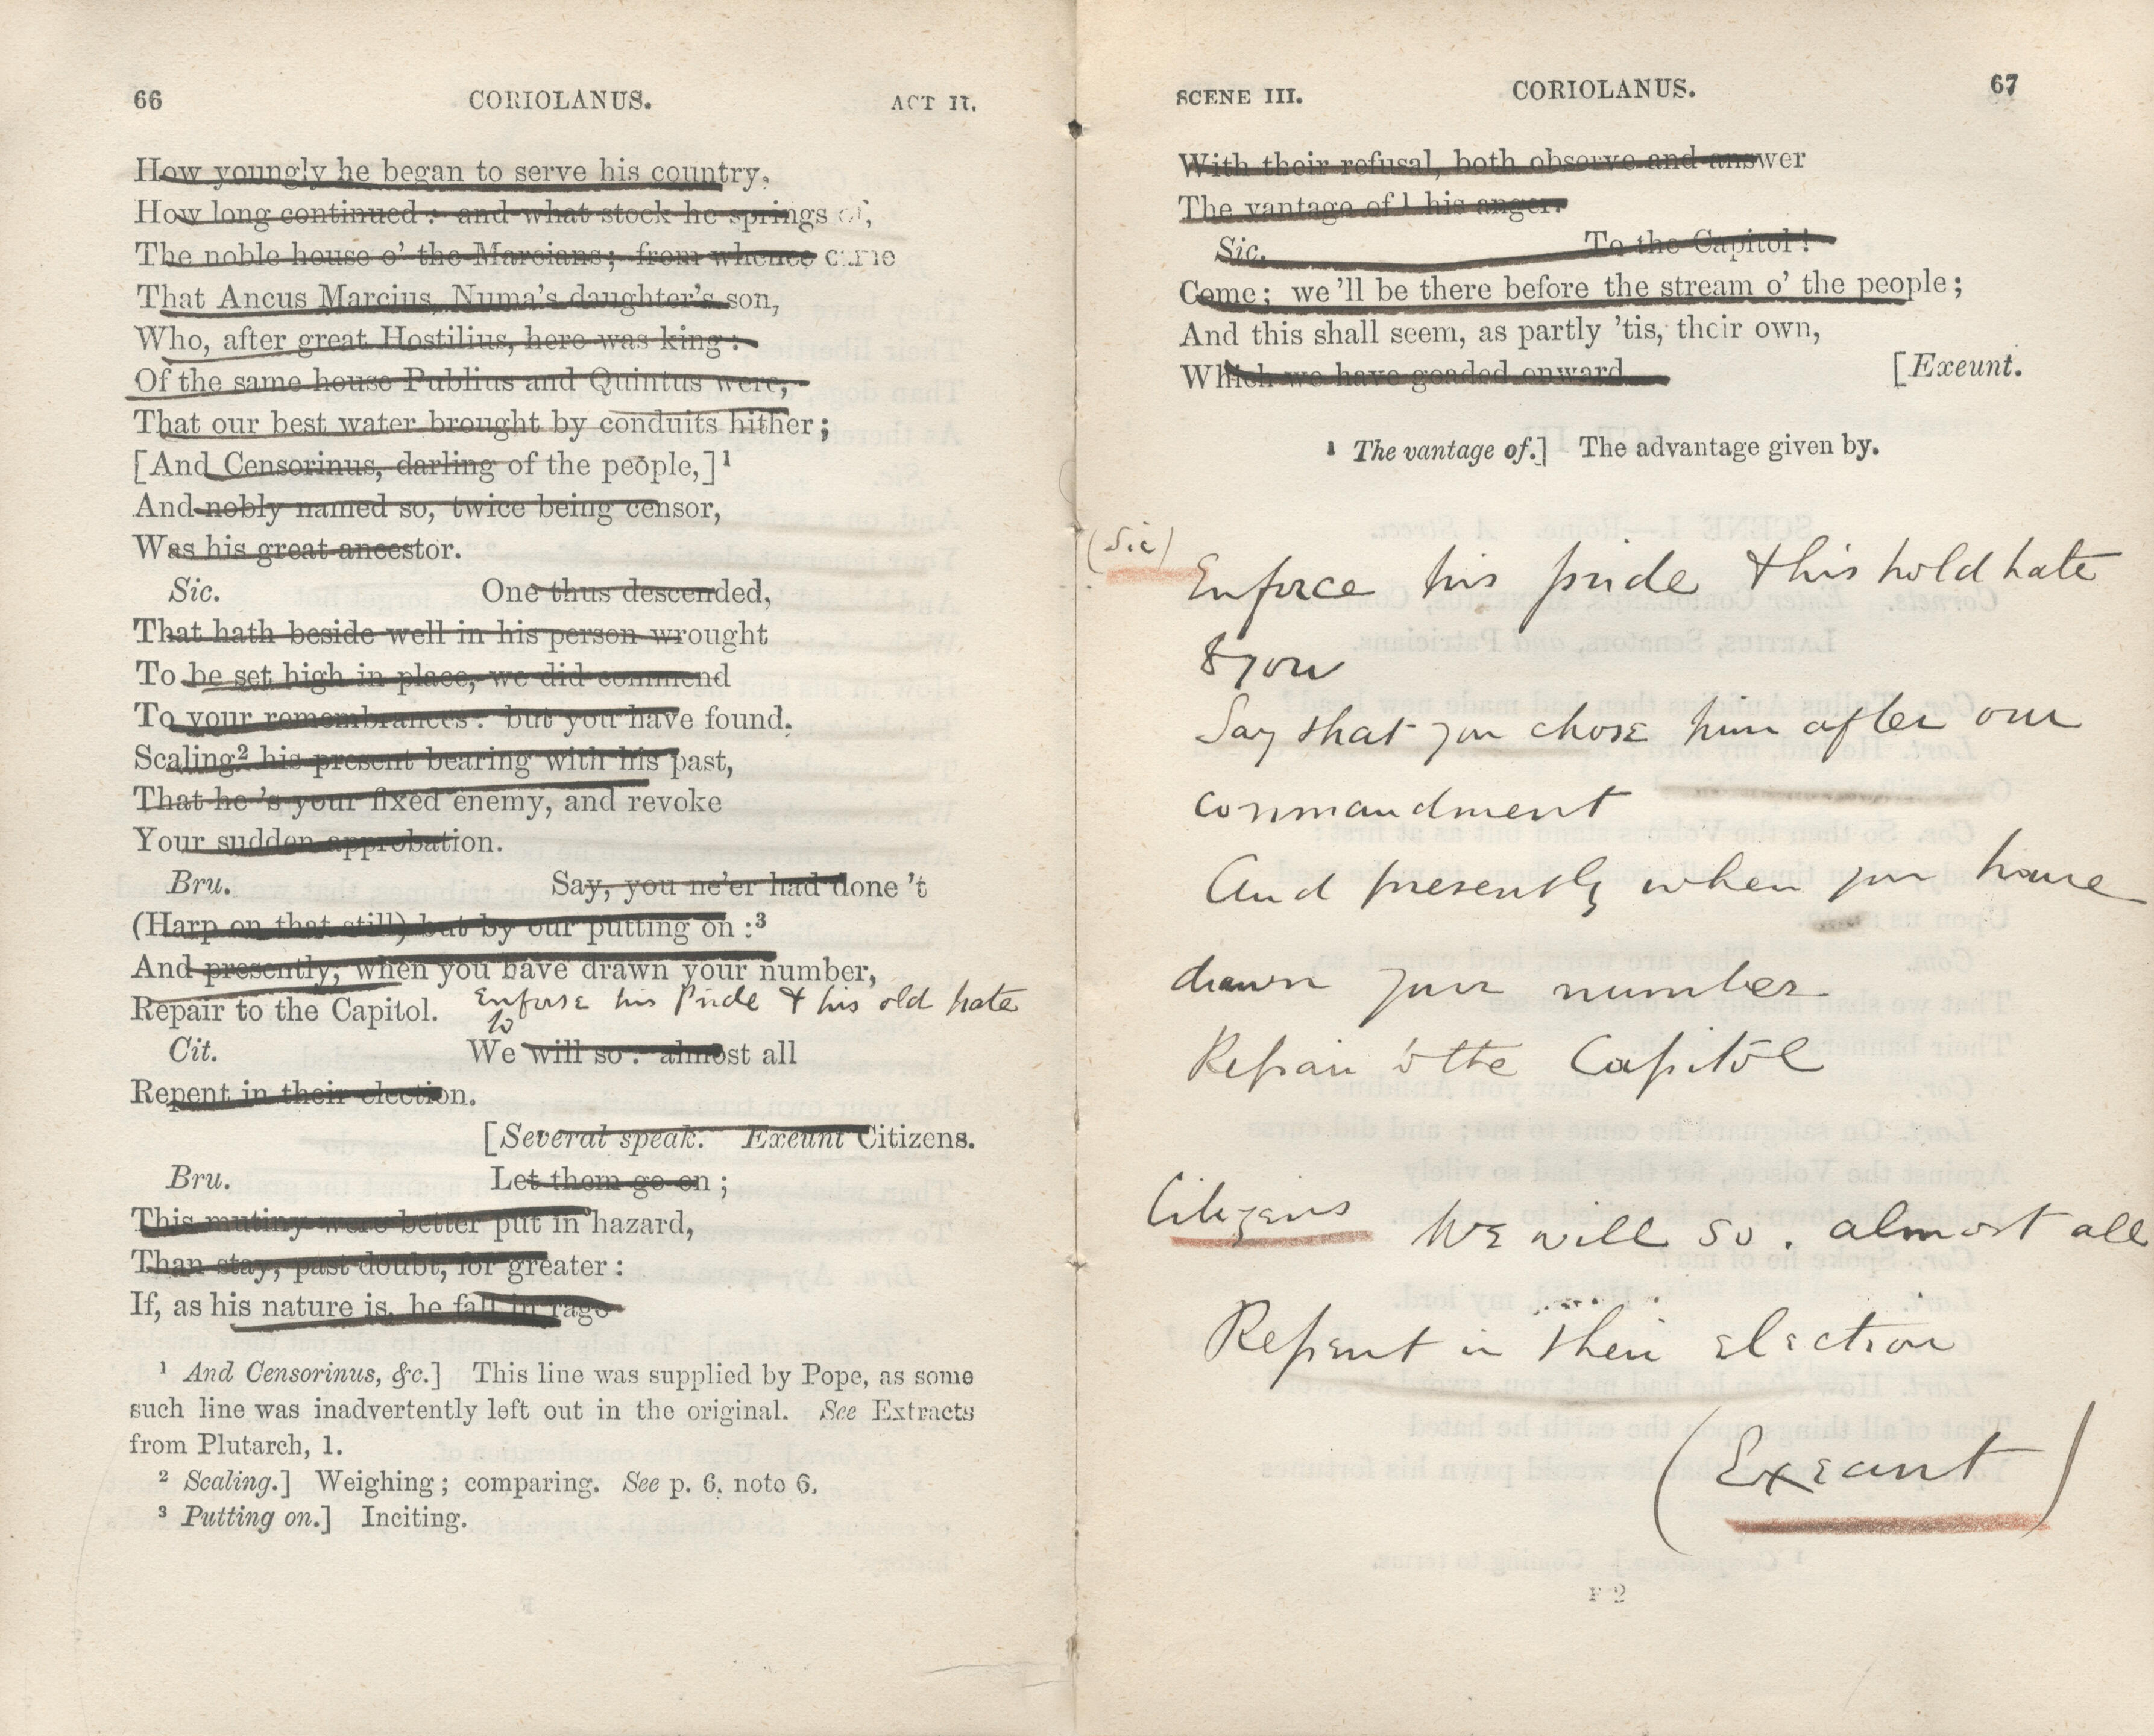 66 CORIOLANUS. ACT II.
How youngly he began to serve his country,
How long continued: and what stock he springs of,
The noble house o' the Marcians; from whence came
That Ancus Marcius, Numa's daughter's son,
Who, after great Hostilius, here was king:
Of the same house Publius and Quintus were,
That our best water brought by conduits hither;
[And Censorinus, darling of the people,]¹
And nobly named so, twice being censor,
Was his great ancestor.
Sic. One thus descended,
That hath beside well in his person wrought
To be set high in place, we did commend
To your remembrances: but you have found,
Scaling² his present bearing with his past,
That he 's your fixed enemy, and revoke
Your sudden approbation.
Bru. Say, you ne'er had done 't
(Harp on that still) but by our putting on:³
And presently, when you have drawn your number,
Repair to the Capitol. Enforse his Pride & his old hate
to
Cit. We will so: almost all
Repent in their election.
[Several speak. Exeunt Citizens.
Bru. Let them go on;
This mutiny were better put in hazard,
Than stay, past doubt, for greater:
If, as his nature is, he fall in rage
¹ And Censorinus, &c.] This line was supplied by Pope, as some
such line was inadvertently left out in the original. See Extracts
from Plutarch, 1.
² Scaling.] Weighing; comparing. See p. 6. note 6.
³ Putting on.] Inciting.
SCENE III. CORIOLANUS. 67
With their refusal, both observe and answer
The vantage of¹ his anger.
Sic. To the Capitol!
Come; we 'll be there before the stream o' the people;
And this shall seem, as partly 'tis, their own,
Which we have goaded onward. [Exeunt.
¹ The vantage of.] The advantage given by.
(Sic)
Enforce his pride & his hold hate
& you
Say that you chose him after our
commandment
And presently when you have
drawn your number
Repair to the Capitol
Citizens We will so. almost all
Repent in their election
(Exeant)
F 2